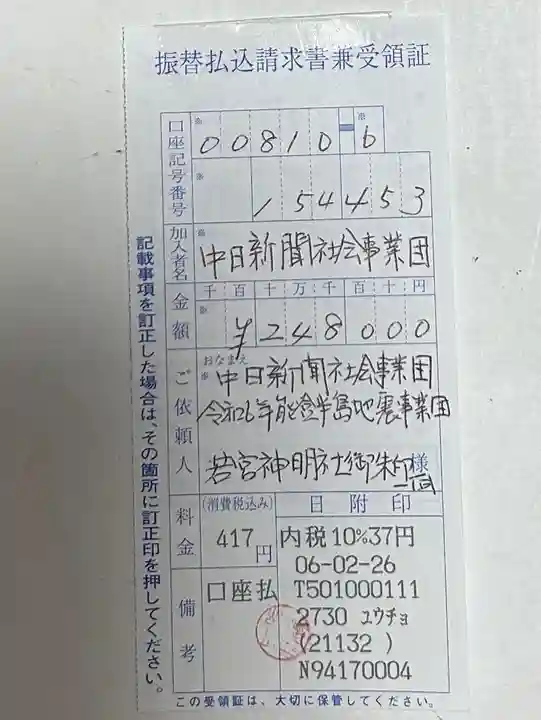 振替払込請求書兼受領証
口座記号番号
※ 00810-6 ※
※ 154453
加入者名
※ 中日新聞社会事業団
金額
千百十万千百十円
※ ¥248000
ご依頼人
おなまえ
※ 中日新聞社会事業団
令和6年能登半島地震事業団
若宮神明社御朱印
一同
様
料金
(消費税込み)
417円
日附印
内税10%37円
06-02-26
T501000111
2730 ユウチョ
(21132 )
N94170004
備考
口座払
この受領証は、大切に保管してください。
記載事項を訂正した場合は、その箇所に訂正印を押してください。